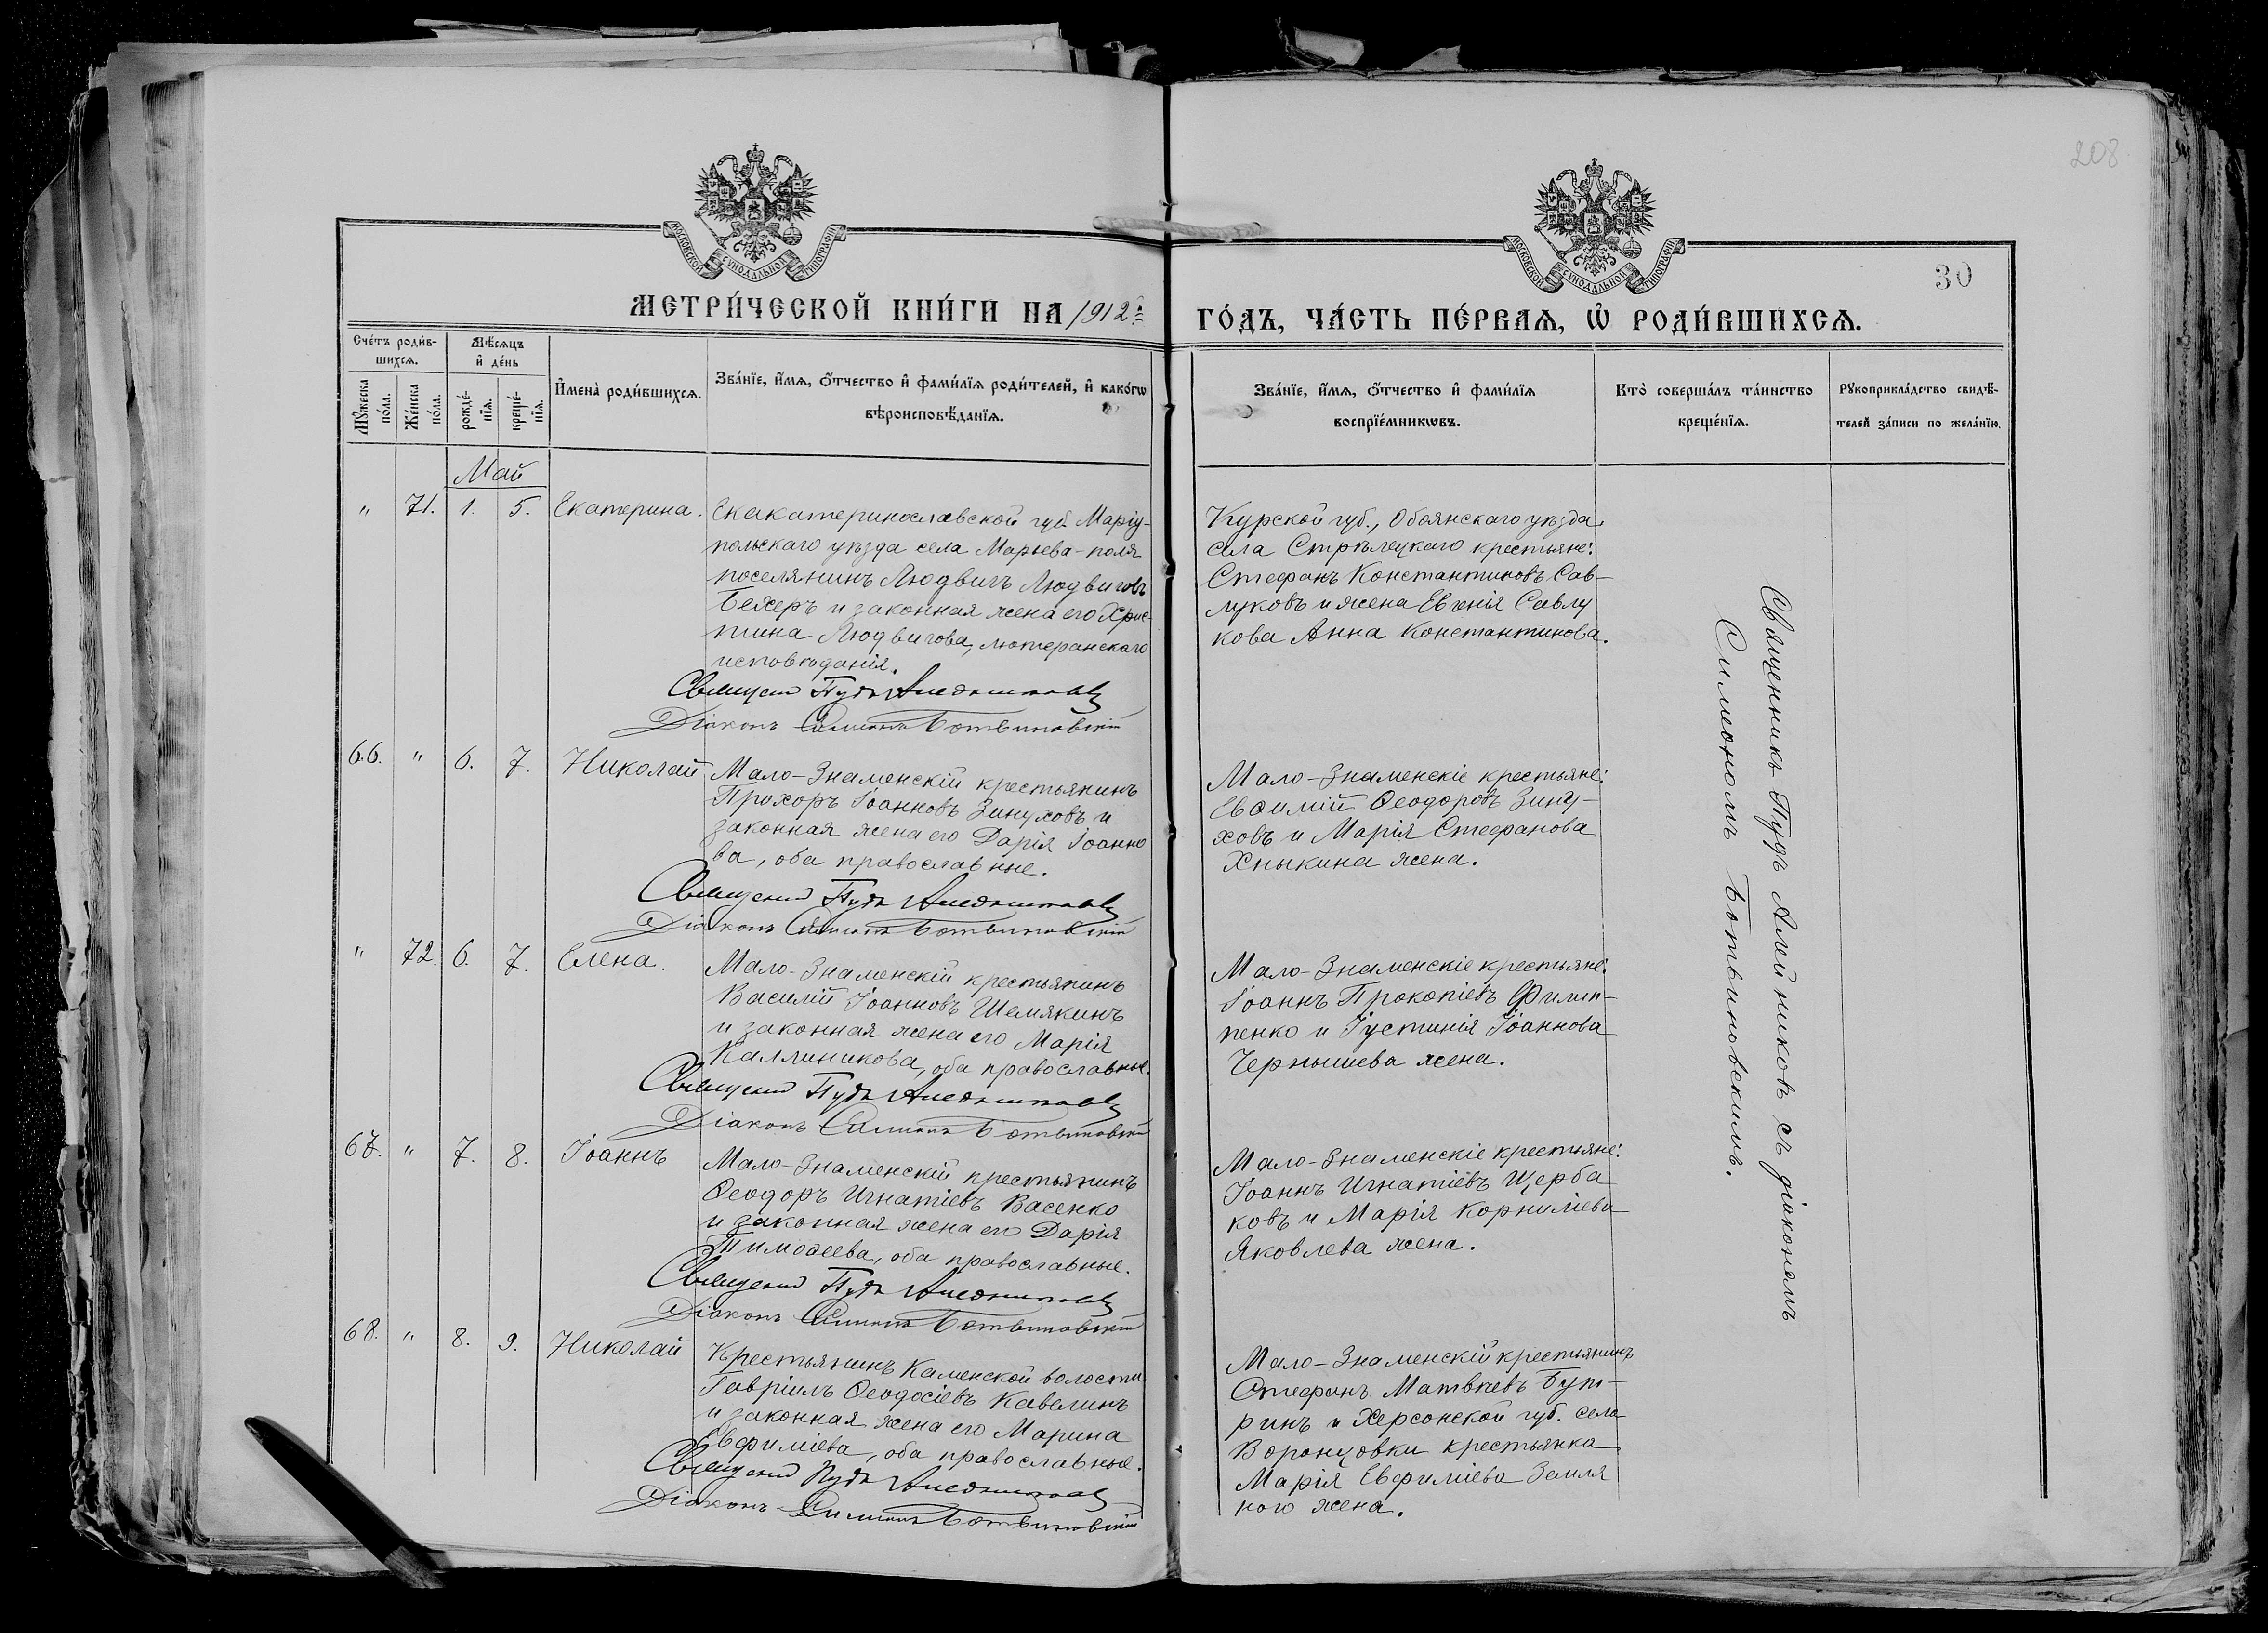 208
30
МОСКОВСКОЙ СѴНОДАЛЬНОЙ ТИПОГРАФІИ
МОСКОВСКОЙ СѴНОДАЛЬНОЙ ТИПОГРАФІИ
МЕТРИ́ЧЕСКОЙ КНИ́ГИ НА 1912й
ГО́ДЪ, ЧА́СТЬ ПЕ́РВАѦ, Ѡ РОДИ́ВШИХСѦ.
Сче́тъ роди́в-
шихсѧ.
Мꙋ́жеска
по́ла.
Же́нска
по́ла.
Мѣ́сѧцъ
и҆ де́нь
рожде́-
нїѧ.
креще́-
нїѧ.
И҆мена̀ роди́вшихсѧ.
Зва́нїе, и҆́мѧ, ѻ҆́тчество и҆ фами́лїѧ роди́телей, и҆ како́гѡ
вѣроисповѣ́данїѧ.
Зва́нїе, и҆́мѧ, ѻ҆́тчество и҆ фами́лїѧ
воспрїе́мникѡвъ.
Кто̀ соверша́лъ та́инство
креще́нїѧ.
Рꙋкоприкла́дство свидѣ́-
телей за́писи по жела́нїю.
Май
" 71. 1. 5. Екатерина.
Екакатеринославской губ. Маріу-
польскаго уѣзда села Марьева-поля
поселянинъ Людвигъ Людвиговъ
Бехеръ и законная жена его Хрис-
тина Людвигова, лютеранскаго
исповѣданія.
Священ Пудъ Алейниковъ
Діаконъ Симеонъ Ботвиновскій
Курской губ., Обоянскаго уѣзда
села Стрѣлецкаго крестьяне:
Стефанъ Константиновъ Сав-
луковъ и жена Евгенія Савлу
кова Анна Константинова.
66. " 6. 7. Николай
Мало-Знаменскій крестьянинъ
Прохоръ Іоанновъ Зинуховъ и
законная жена его Дарія Іоанно
ва, оба православные.
Священник Пудъ Алейниковъ
Діаконъ Симеонъ Ботвиновскій
Мало-Знаменскіе крестьяне:
Евѳимій Ѳеодоровъ Зину-
ховъ и Марія Стефанова
Хныкина жена.
" 72. 6. 7. Елена.
Мало-Знаменскій крестьянинъ
Василій Іоанновъ Шемякинъ
и законная жена его Марія
Каллиникова, оба православные.
Священник Пудъ Алейниковъ
Діаконъ Симеонъ Ботвиновскій
Мало-Знаменскіе крестьяне:
Іоаннъ Прокопіевъ Филип-
пенко и Іустинія Іоаннова
Чернышева жена.
67. " 7. 8. Іоаннъ
Мало-Знаменскій крестьянинъ
Ѳеодоръ Игнатіевъ Васенко
и законная жена его Дарія
Тимоѳеева, оба православные.
Священник Пудъ Алейниковъ
Діаконъ Симеонъ Ботвиновскій
Мало-Знаменскіе крестьяне:
Іоаннъ Игнатіевъ Щерба
ковъ и Марія Корниліева
Яковлева жена.
68. " 8. 9. Николай
Крестьянинъ Каменской волости
Гавріилъ Ѳеодосіевъ Кавелинъ
и законная жена его Марина
Евфиміева, оба православные.
Священник Пудъ Алейниковъ
Діаконъ Симеонъ Ботвиновскій
Мало-Знаменскій крестьянинъ
Стефанъ Матвѣевъ Бут-
ринъ и Херсонской губ. села
Воронцовки крестьянка
Марія Евфиміева Земля
ного жена.
Священникъ Пудъ Алейниковъ съ діакономъ
Симеономъ Ботвиновскимъ.